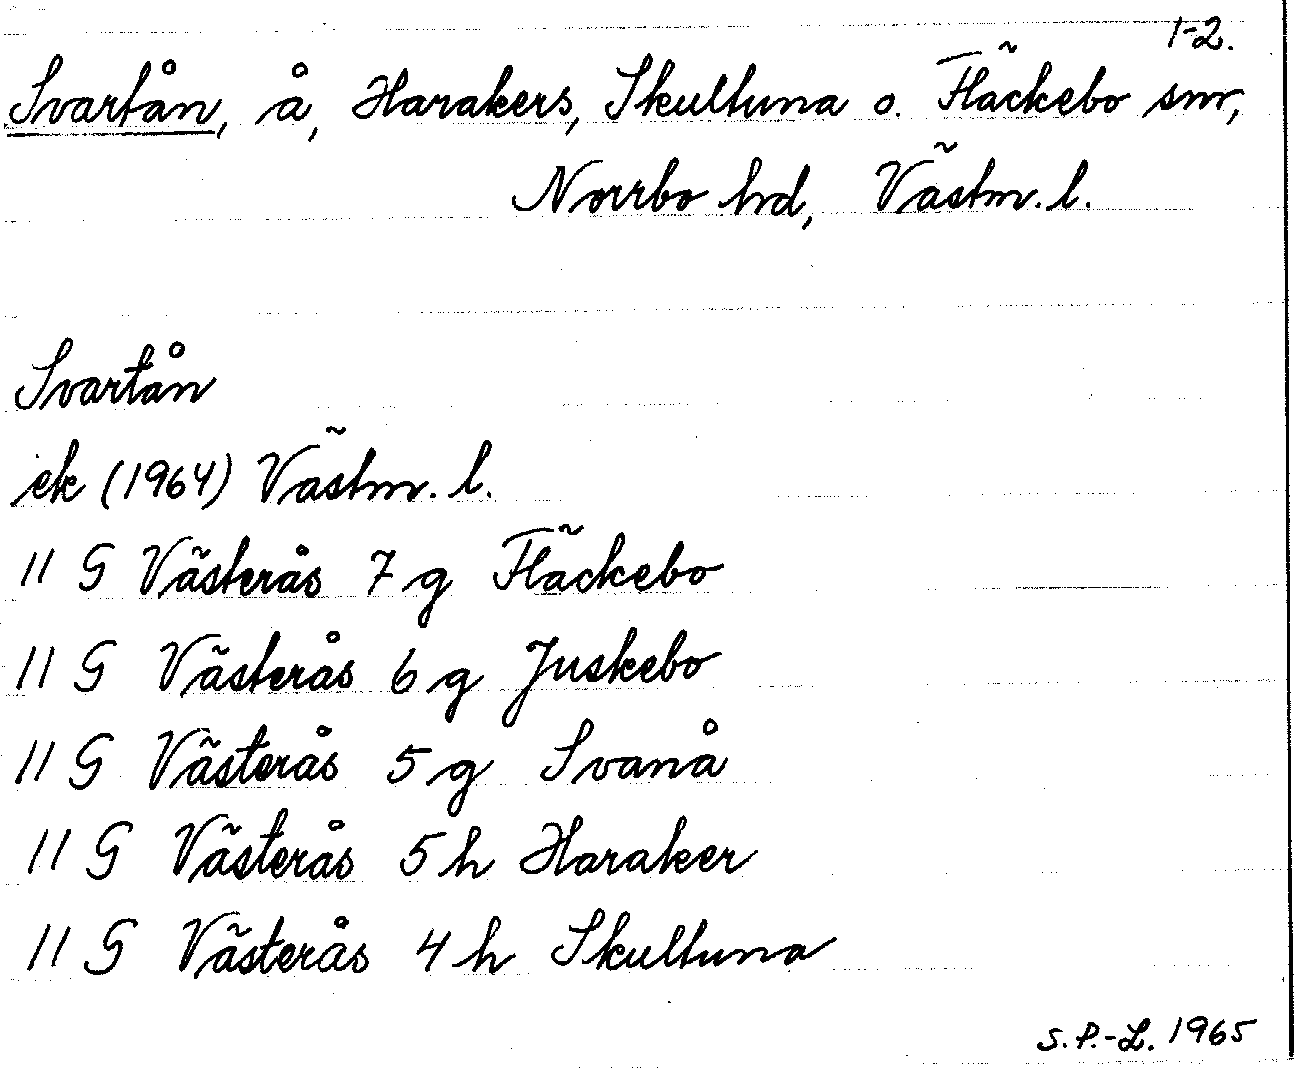 1-2.
Svartån, å, Harakers, Skultuna o. Fläckebo snr,
Norrbo hd, Västm. l.
Svartån
ek (1964) Västm. l.
11 G Västerås 7 g Fläckebo
11 G Västerås 6 g Juskebo
11 G Västerås 5 g Svanå
11 G Västerås 5 h Haraker
11 G Västerås 4 h Skultuna
S.P.-L. 1965